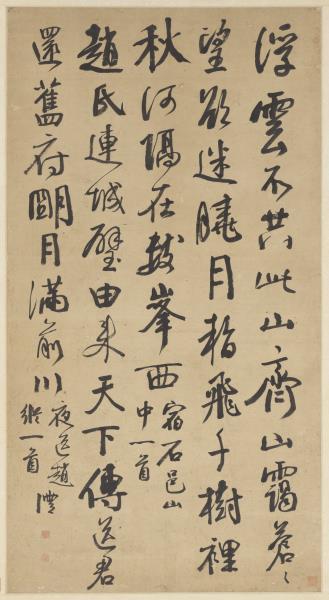 浮雲不共此山齊山靄蒼〻
望欲迷曉月暫飛千樹裡
秋河隔在數峯西
宿石邑山
中一首
趙氏連城璧由來天下傳送君
還舊府明月滿前川
夜送趙
縱一首